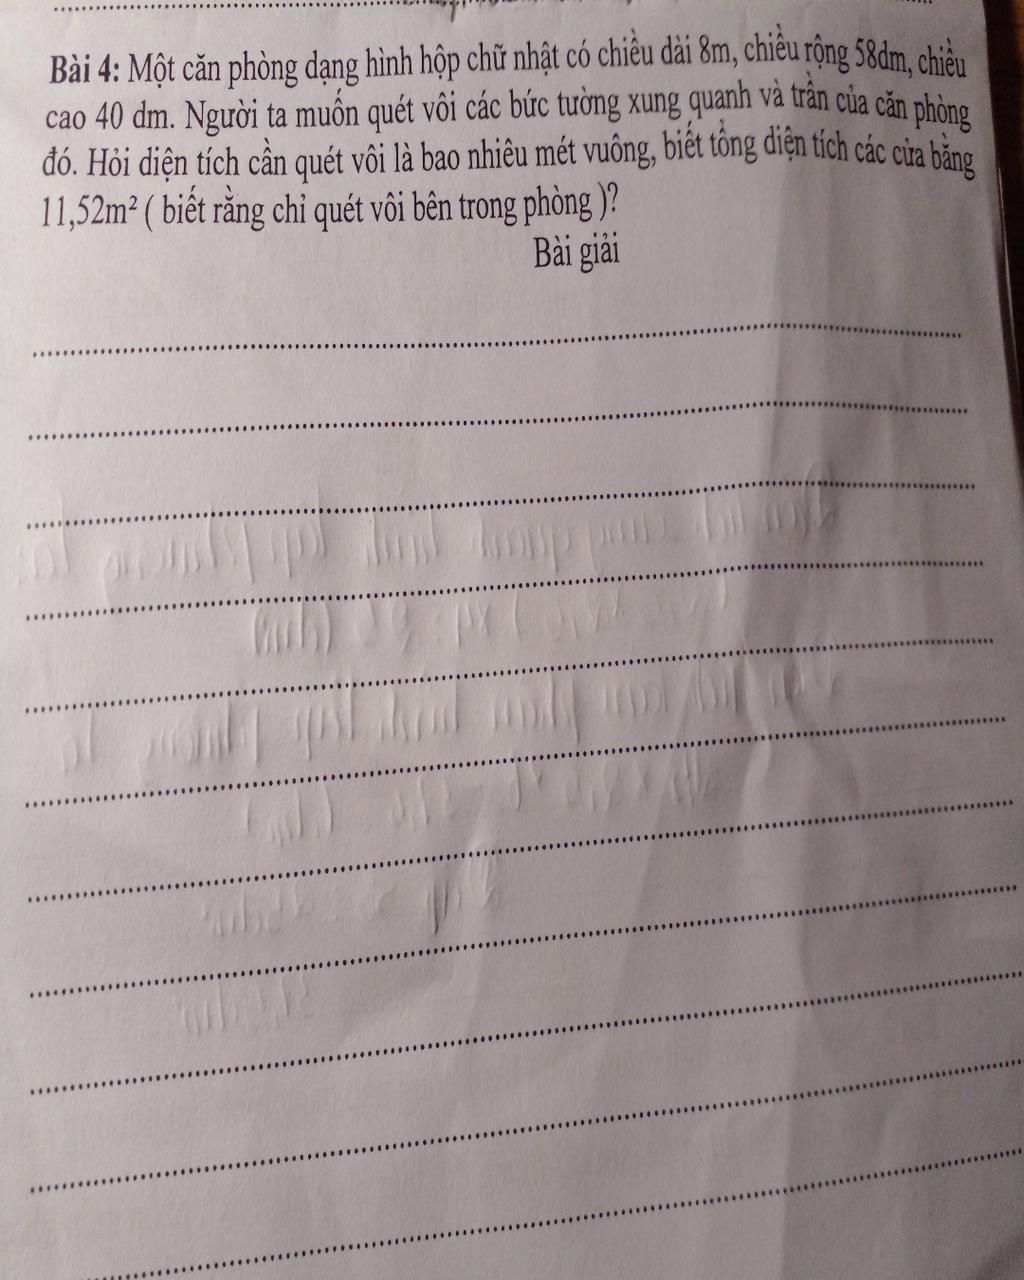 Bài 4: Một căn phòng dạng hình hộp chữ nhật có chiều dài 8m, chiều rộng 58dm, chiều
cao 40 dm. Người ta muốn quét vôi các bức tường xung quanh và trần của căn phòng
đó. Hỏi diện tích cần quét vôi là bao nhiêu mét vuông, biết tổng diện tích các cửa bằng
11,52m² ( biết rằng chỉ quét vôi bên trong phòng )?
Bài giải